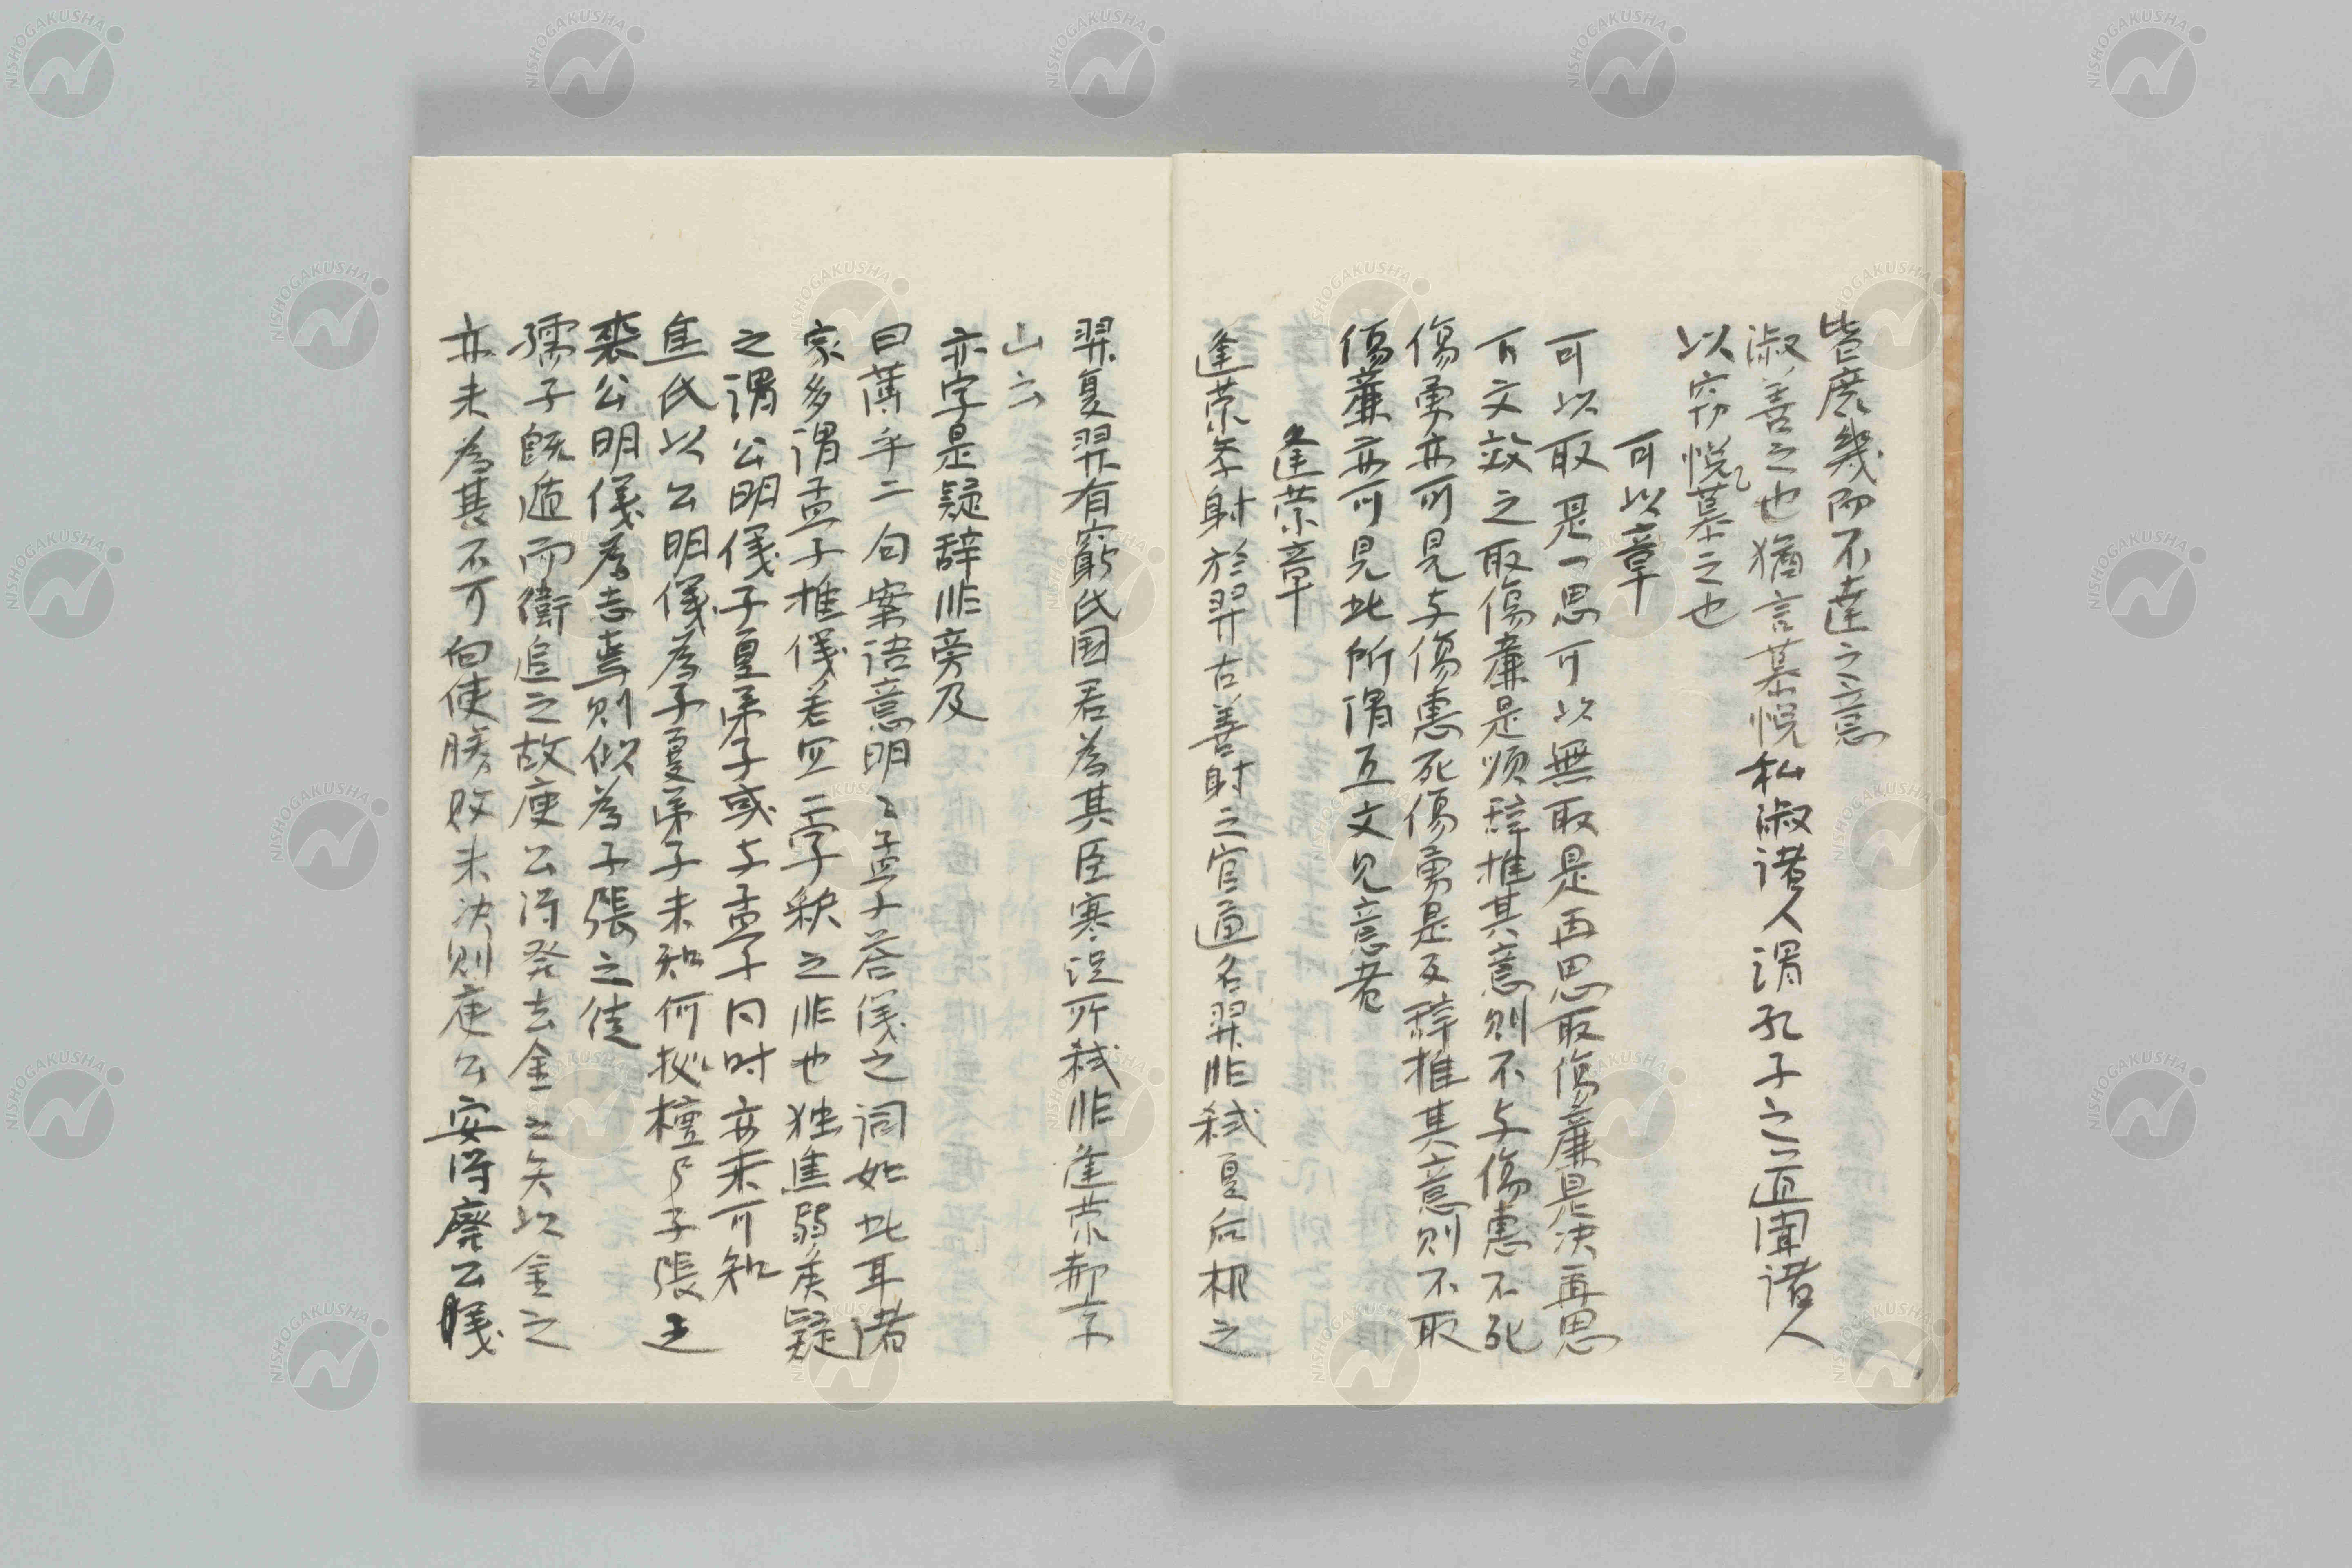 皆庶幾而不達之意
淑善之也猶言慕悦私淑諸人謂孔子之道聞諸人
以窃悦慕之也
可以章
可以取是一思可以無取是再思取傷廉是决再思
下文效之取傷廉是順辞推其意則不与傷惠不死
傷勇亦可見与傷惠死傷勇是反辞推其意則不取
傷廉亦可見此所謂互文見意者
逢蒙章
逢蒙学射於羿古善射之官通名羿非弑夏后相之
羿夏羿有窮氏国君為其臣寒浞所弑非逢蒙郝京
山云
亦字是疑辞非旁及
曰薄乎二句案語意明〻孟子答儀之詞如此耳諸
家多謂孟子推儀若宜二字釈之非也独焦弱侯疑
之謂公明儀子夏弟子或与孟子同时亦未可知
焦氏以公明儀為子夏弟子未知何拠檀弓子張之
喪公明儀為志焉則似為子張之徒
孺子既遁而衛追之故庾公得発去金之矢以金之
亦未為甚不可向使勝敗未决則庾公安得廃公賎